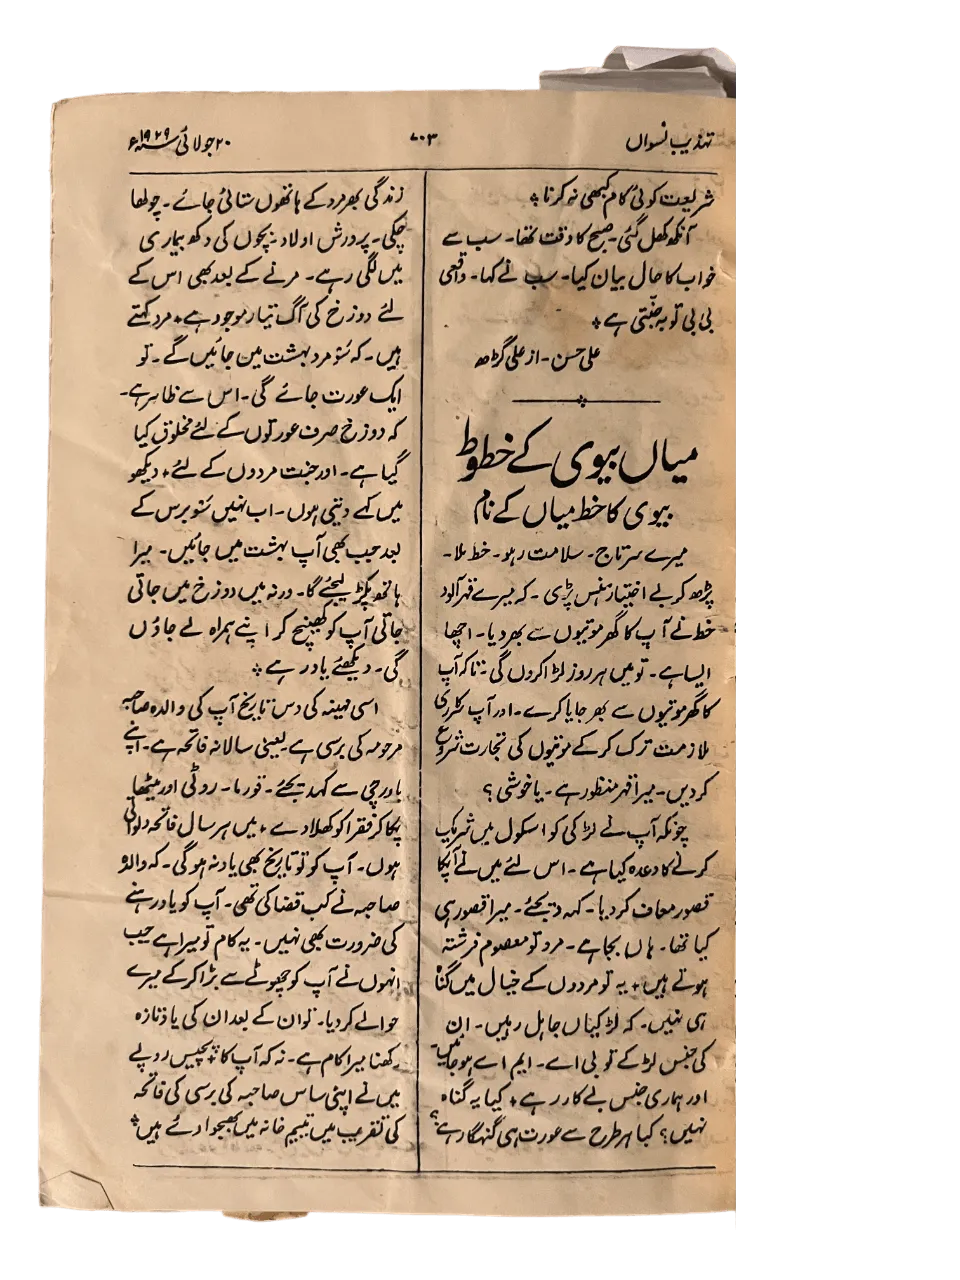 تہذیب نسواں
۷۰۳
۲۰ جولائی سنہ ۱۹۲۹ء
شریعت کوئی کام کبھی نہ کرنا ÷
آنکھ کھل گئی۔ صبح کا وقت تھا۔ سب سے
خواب کا حال بیان کیا۔ سب نے کہا۔ واقعی
بی بی تو یہ جنّتی ہے ÷
علی حسن۔ از علی گڑھ
میاں بیوی کے خطوط
بیوی کا خط میاں کے نام
میرے سرتاج۔ سلامت رہو۔ خط ملا۔
پڑھ کر بے اختیار ہنس پڑی۔ کہ میرے قہر آلود
خط نے آپ کا گھر موتیوں سے بھر دیا۔ اچھا
ایسا ہے۔ تو میں ہر روز لڑا کروں گی: تاکہ آپ
کا گھر موتیوں سے بھر جایا کرے۔ اور آپ نوکری
ملازمت ترک کر کے موتیوں کی تجارت شروع
کر دیں۔ میرا قہر منظور ہے۔ یا خوشی؟
چونکہ آپ نے لڑکی کو اسکول میں شریک
کرنے کا وعدہ کیا ہے۔ اس لئے میں نے آپکا
قصور معاف کر دیا۔ کہہ دیجئے۔ میرا قصور ہی
کیا تھا۔ ہاں بجا ہے۔ مرد تو معصوم فرشتہ
ہوتے ہیں ÷ یہ تو مردوں کے خیال میں گناہ
ہی نہیں۔ کہ لڑکیاں جاہل رہیں۔ ان
کی جنس لڑکے تو بی اے۔ ایم اے ہو جائیں۔
اور ہماری جنس بے کار رہے ÷ کیا یہ گناہ
نہیں؟ کیا ہر طرح سے عورت ہی گنہگار ہے؟
زندگی بھر مرد کے ہاتھوں ستائی جائے۔ چولھا
چکی۔ پرورش اولاد۔ بچوں کی دکھ بیماری
میں لگی رہے۔ مرنے کے بعد بھی اس کے
لئے دوزخ کی آگ تیار موجود ہے ÷ مرد کہتے
ہیں۔ کہ سَو مرد بہشت میں جائیں گے۔ تو
ایک عورت جائے گی۔ اس سے ظاہر ہے۔
کہ دوزخ صرف عورتوں کے لئے مخلوق کیا
گیا ہے۔ اور جنت مردوں کے لئے ÷ دیکھو
میں کہے دیتی ہوں۔ اب نہیں سَو برس کے
بعد جب بھی آپ بہشت میں جائیں۔ میرا
ہاتھ پکڑ لیجئے گا۔ ورنہ میں دوزخ میں جاتی
جاتی آپ کو کھینچ کر اپنے ہمراہ لے جاؤں
گی۔ دیکھئے یاد رہے ÷
اسی مہینہ کی دس تاریخ آپ کی والدہ صاحبہ
مرحومہ کی برسی ہے یعنی سالانہ فاتحہ ہے۔ اپنے
باورچی سے کہہ دیجئے۔ قورما۔ روٹی اور میٹھا
پکا کر فقرا کو کھلا دے ÷ میں ہر سال فاتحہ دلواتی
ہوں۔ آپ کو تو تاریخ بھی یاد نہ ہوگی۔ کہ والدہ
صاحبہ نے کب قضا کی تھی۔ آپ کو یاد رہنے
کی ضرورت بھی نہیں۔ یہ کام تو میرا ہے جب
انہوں نے آپ کو چھوٹے سے بڑا کر کے میرے
حوالے کر دیا۔ تو ان کے بعد ان کی یاد تازہ
رکھنا میرا کام ہے۔ نہ کہ آپ کا ÷ پچیس روپے
میں نے اپنی ساس صاحبہ کی برسی کی فاتحہ
کی تقریب میں یتیم خانہ میں بھجوا دئے ہیں ÷